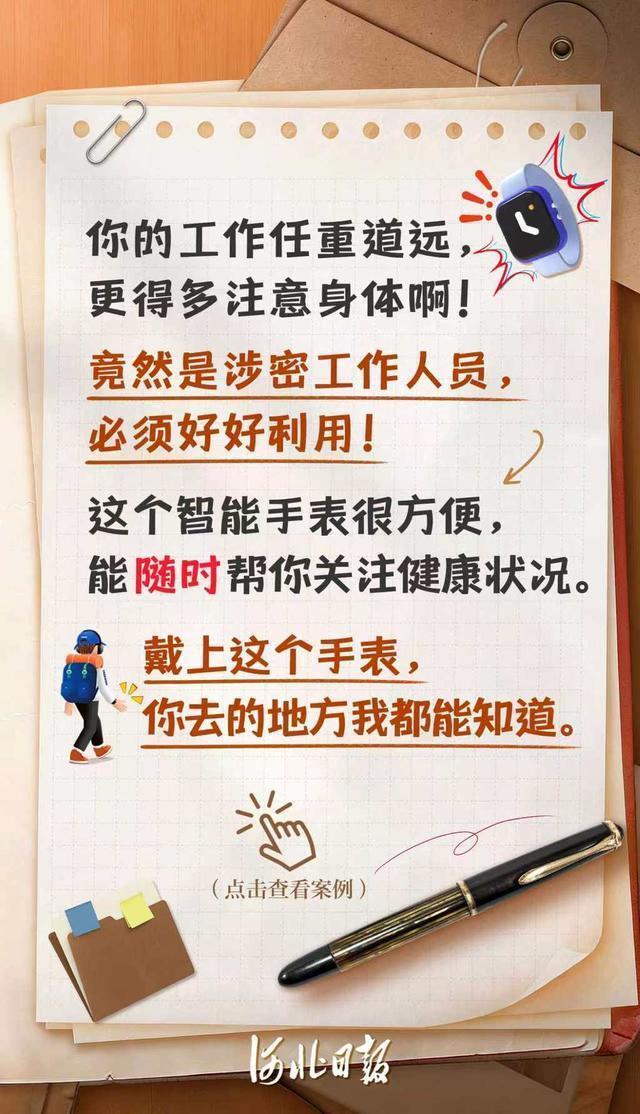 你的工作任重道远，
更得多注意身体啊！
竟然是涉密工作人员，
必须好好利用！
这个智能手表很方便，
能随时帮你关注健康状况。
戴上这个手表，
你去的地方我都能知道。
（点击查看案例）
河北日报